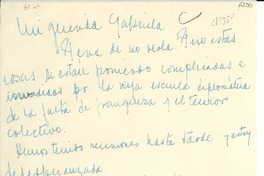 Mi querida Gabriela
de no verla. Pero estas
cosas se están poniendo complicadas e
por la vieja escuela diplomática
de la falta de franqueza y el temor
colectivo.
Hemos tenido reuniones hasta tarde y estoy
desesperanzada